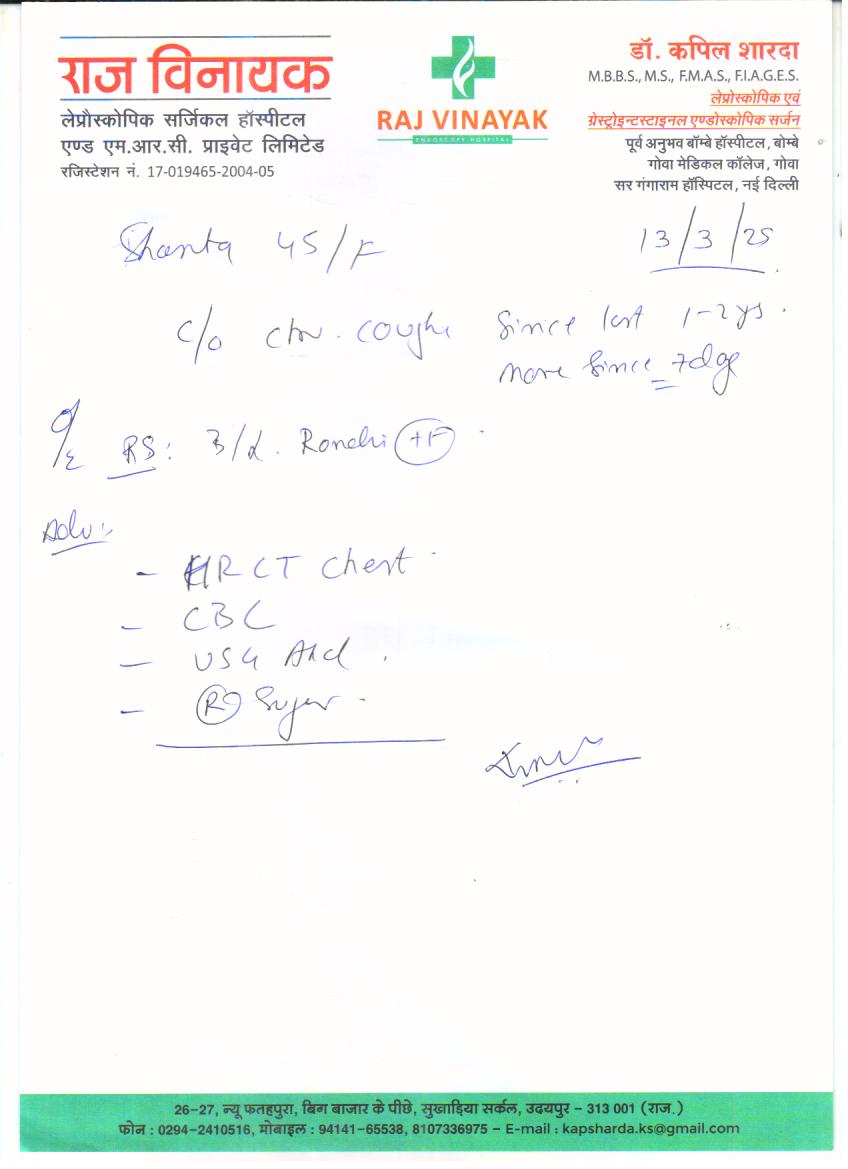 राज विनायक
लेप्रौस्कोपिक सर्जिकल हॉस्पीटल
एण्ड एम.आर.सी. प्राइवेट लिमिटेड
रजिस्टेशन नं. 17-019465-2004-05
RAJ VINAYAK
ENDOSCOPY HOSPITAL
डॉ. कपिल शारदा
M.B.B.S., M.S., F.M.A.S., F.I.A.G.E.S.
लेप्रोस्कोपिक एवं
ग्रेस्ट्रोइन्टस्टाइनल एण्डोस्कोपिक सर्जन
पूर्व अनुभव बॉम्बे हॉस्पीटल, बोम्बे
गोवा मेडिकल कॉलेज, गोवा
सर गंगाराम हॉस्पिटल, नई दिल्ली
Shanta 45/F 13/3/25
c/o chr. cough since last 1-2 ys.
more since 7 days
O/E RS: B/L. Ronchi ++
Adv:-
- HRCT Chest
- CBC
- USG Abd.
- (R) Sugar
26-27, न्यू फतहपुरा, बिग बाजार के पीछे, सुखाड़िया सर्कल, उदयपुर - 313 001 (राज.)
फोन : 0294-2410516, मोबाइल : 94141-65538, 8107336975 - E-mail : kapsharda.ks@gmail.com